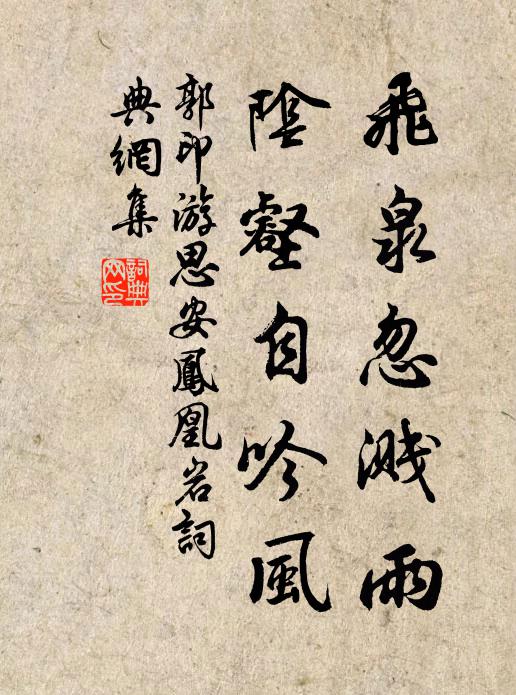 飛泉忽濺雨
陰壑自吟風
郭印游思安鳳凰岩詞
典網集
詞典
网印